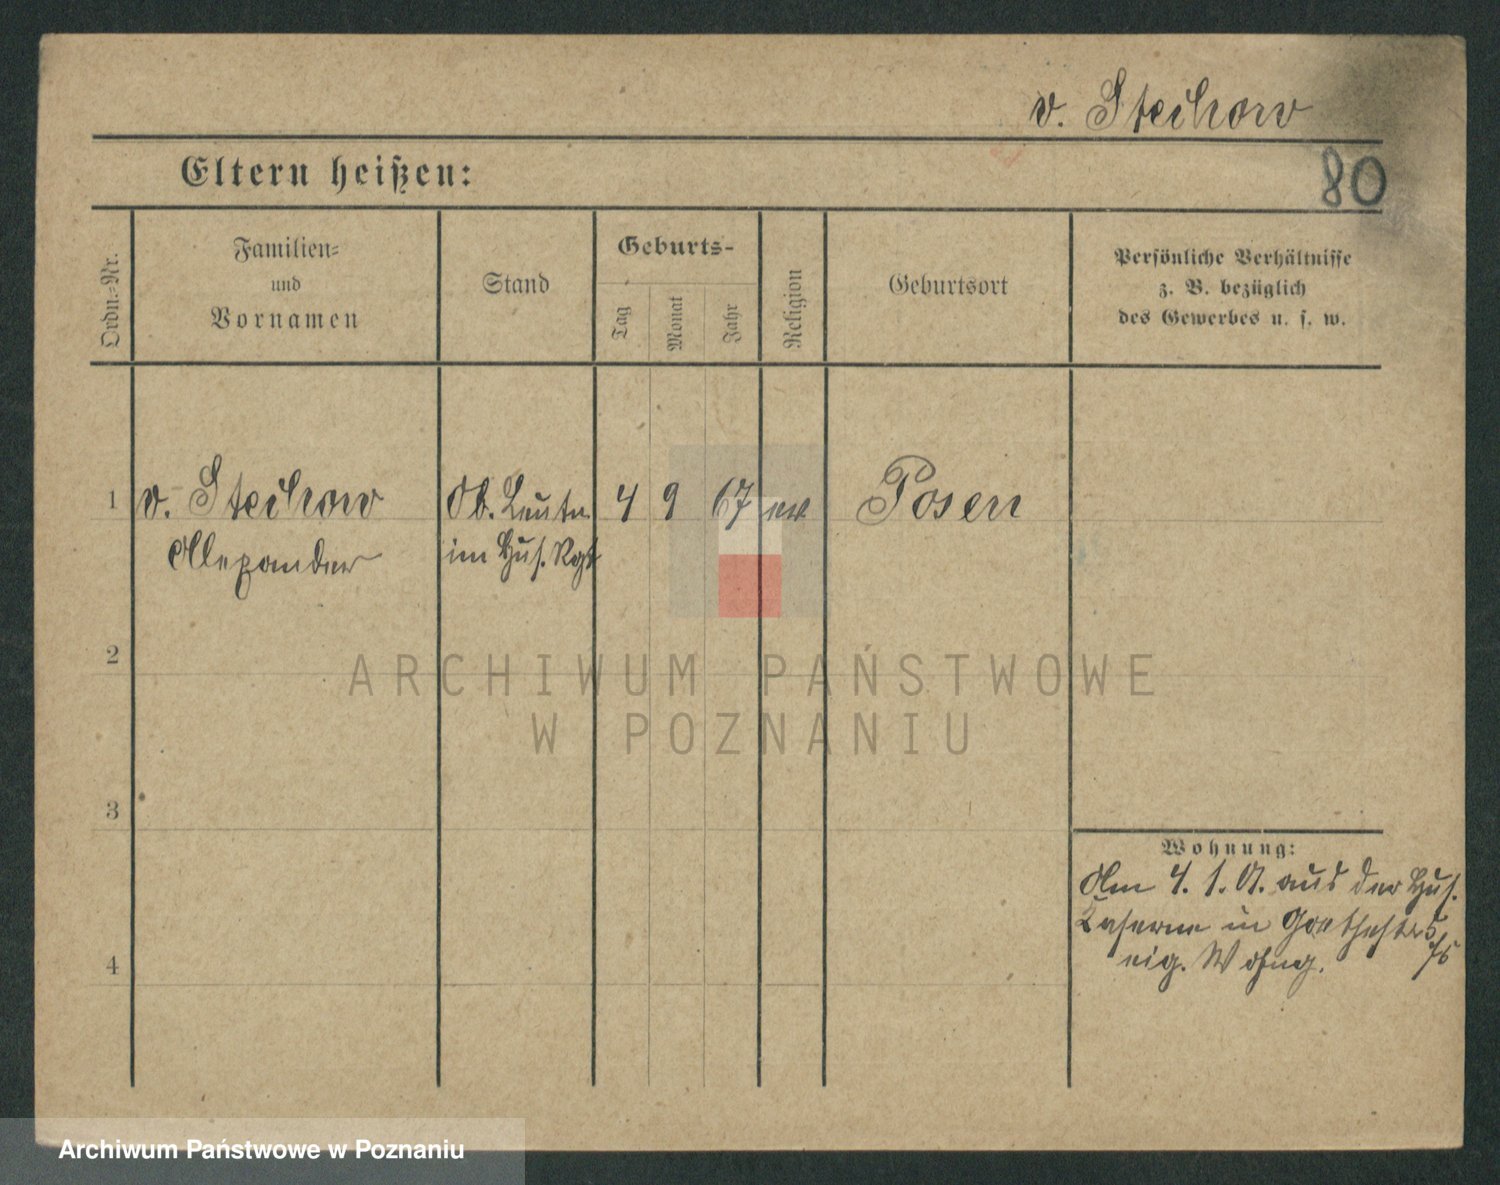 v. Stechow
Eltern heißen:
80
Ordn.-Nr.
Familien-
und
Vornamen
Stand
Geburts-
Tag
Monat
Jahr
Religion
Geburtsort
Persönliche Verhältnisse
z. B. bezüglich
des Gewerbes u. s. w.
1 v. Stechow Ob. Leutn. 4 9 67 ev Posen
Alexander im Hus. Rgt
2
ARCHIWUM PAŃSTWOWE
W POZNANIU
3
Wohnung:
Am 4. 1. 01. aus der Hus.
Kaserne in Goethestr
4
eig. Wohng.
Archiwum Państwowe w Poznaniu